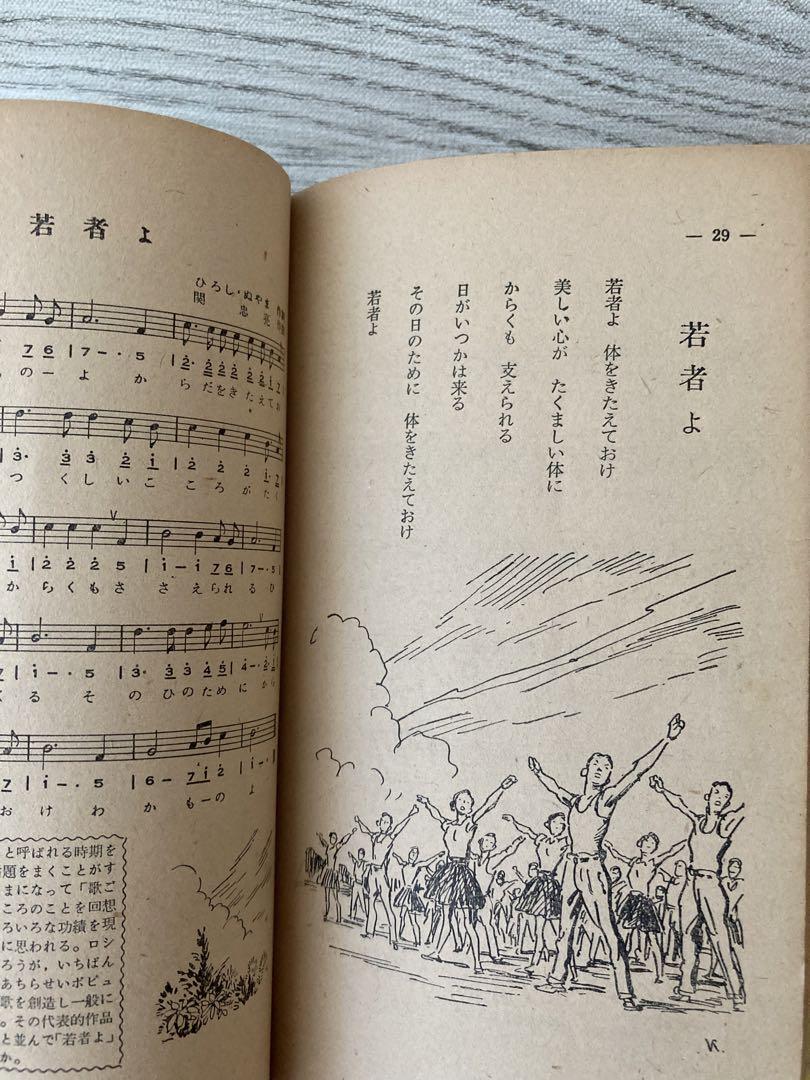 若者よ
ひろし・ぬやま
関 忠亮
76|7-・5|2・222217
ものーよからだをきたえてお
3・332i|222i・7
つくしいこころがたく
i|2225|i-i76|7-・5
からくもささえられるひ
|i-・5|3・3345|4-・2
くるそのひのために
|i-・5|6-7i2|i-・
おけわかもーのよ
と呼ばれる時期を
題をまくことがす
まになって「歌ご
ころのことを回想
ろいろな功績を現
に思われる。ロシ
ろうが、いちばん
あちらせいポピュ
歌を創造し一般に
。その代表的作品
と並んで「若者よ」
か。
— 29 —
若者よ
若者よ 体をきたえておけ
美しい心が たくましい体に
からくも 支えられる
日がいつかは来る
その日のために 体をきたえておけ
若者よ